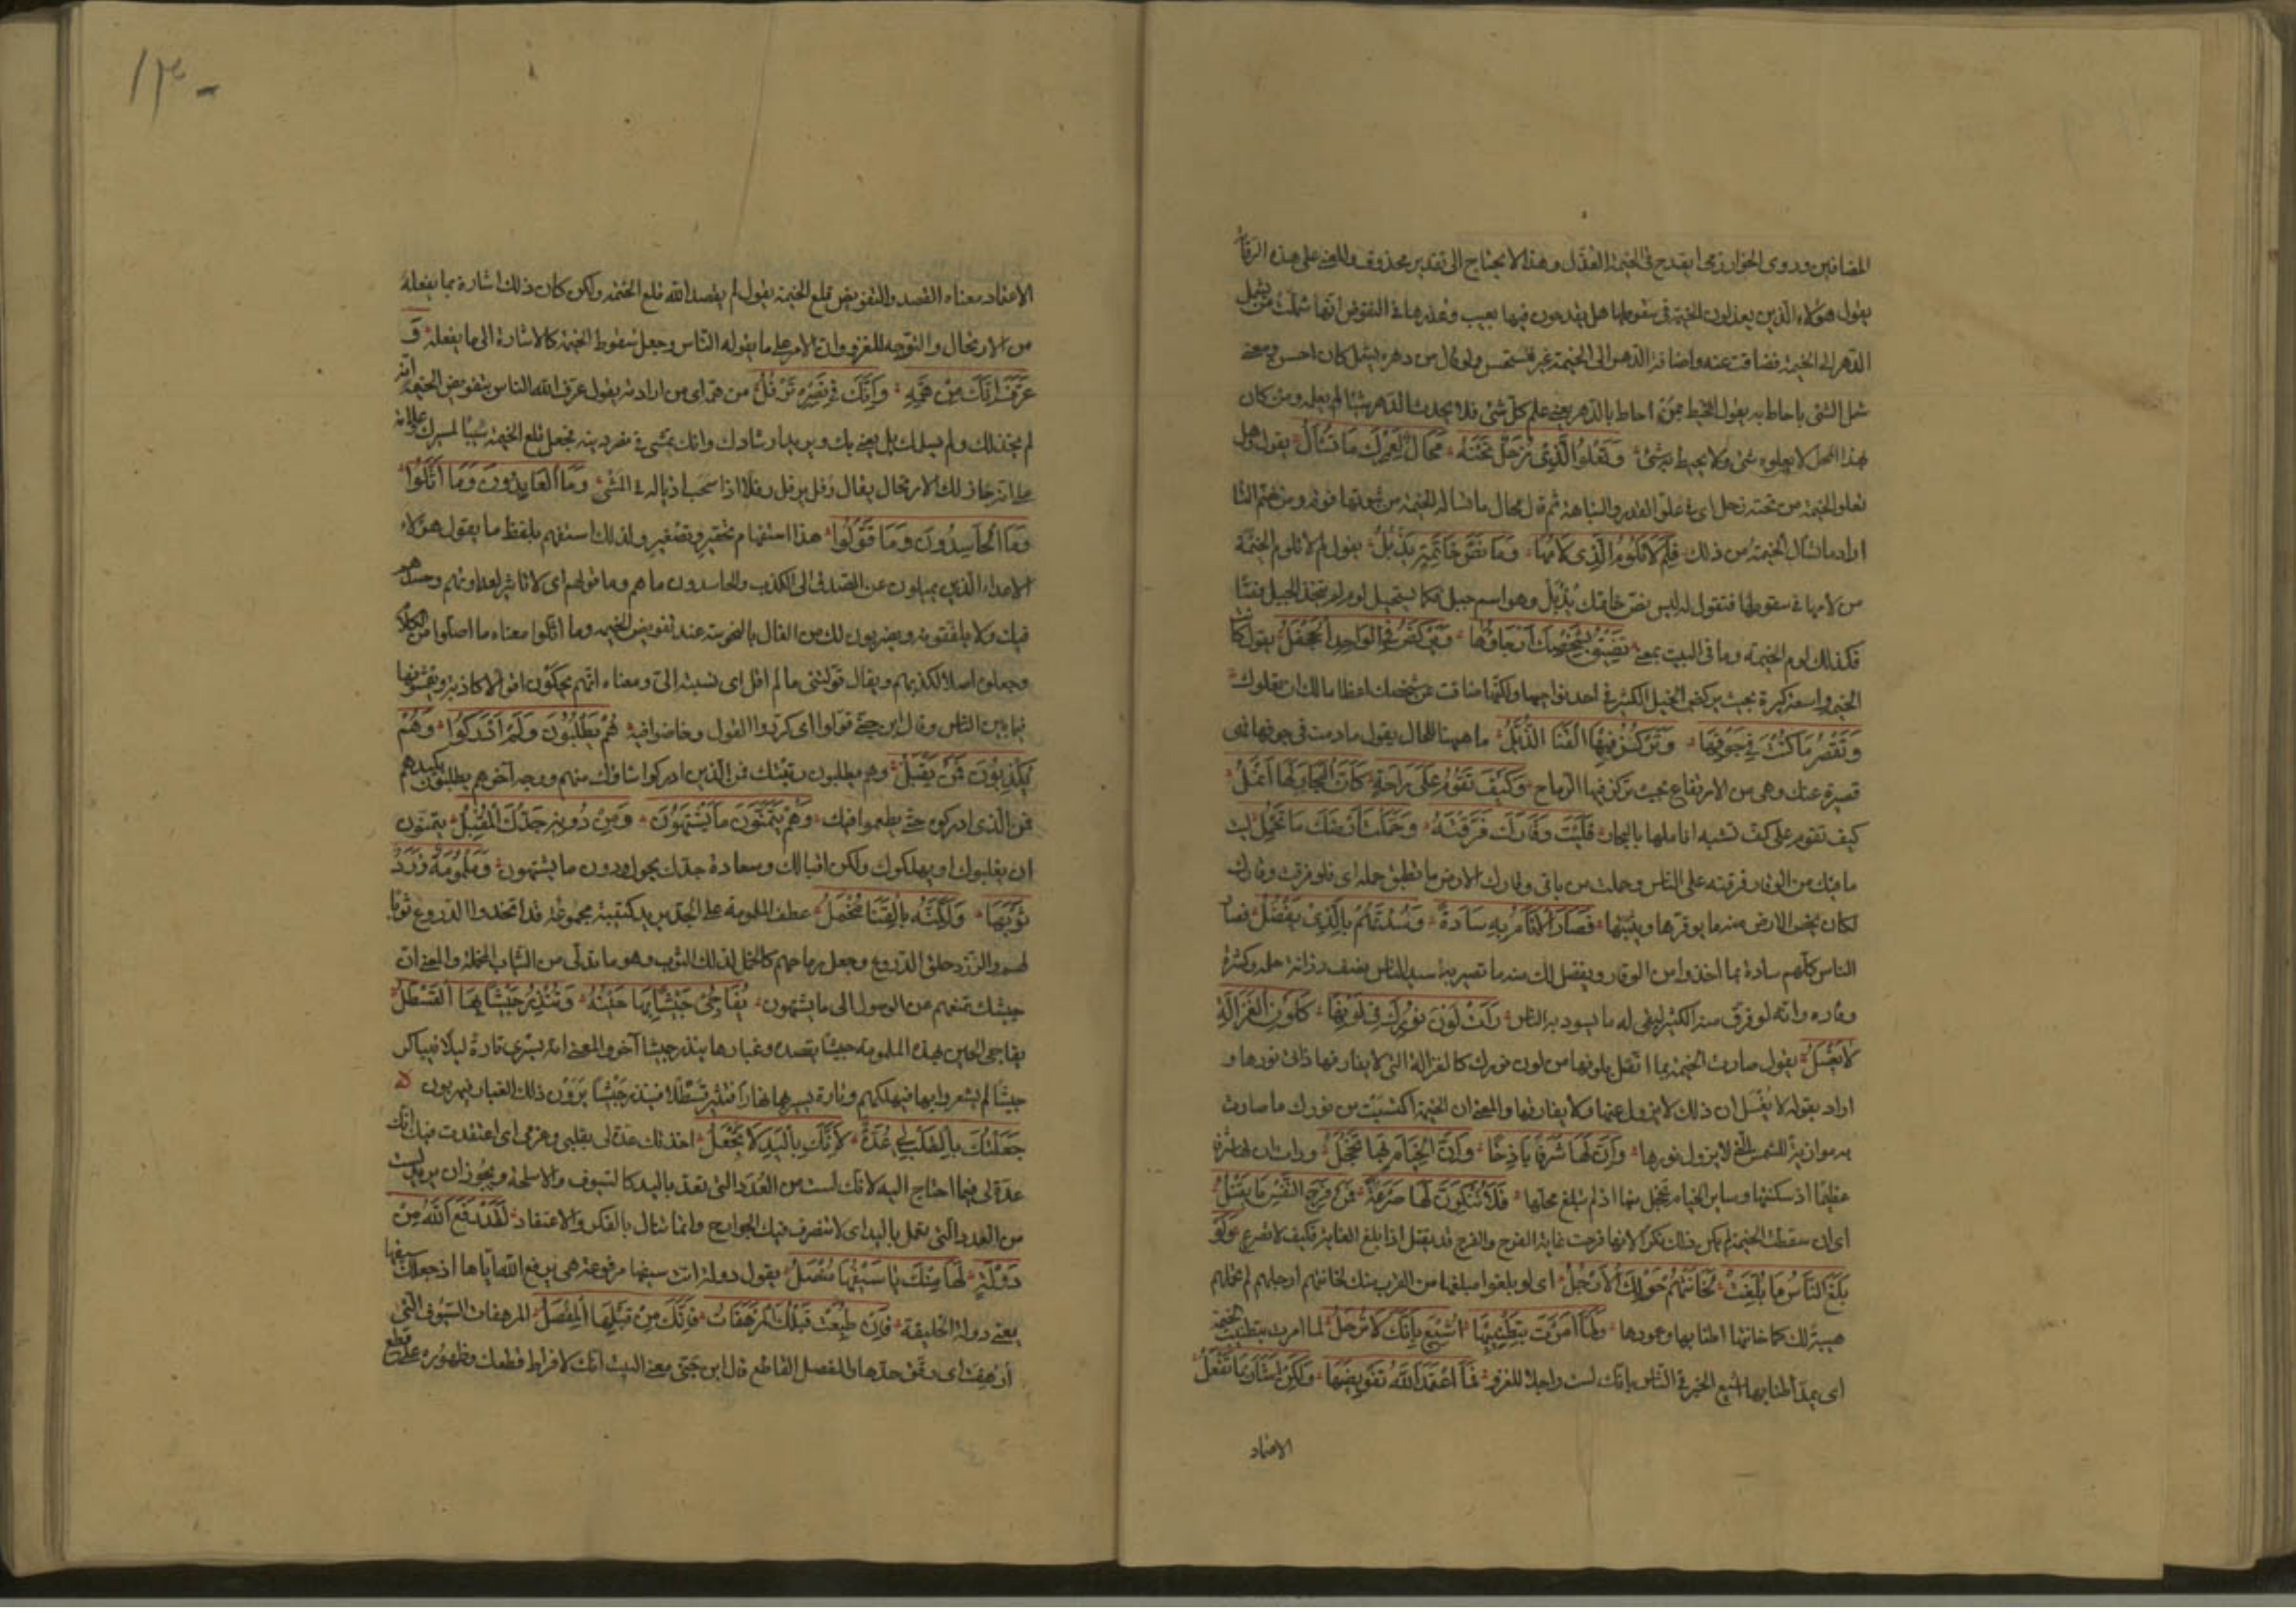 المضافين وروى الخوارزمى ايقدح فى الخيمة العذّل وهذا لا يحتاج الى تقدير محذوف والمعنى على هذه الرواية
يقول هؤلاء الذين يعذلون الخيمة فى سقوطها هل يقدحون فيها بعيب وعذرها فى التقوض انها شملت من يشمل
الدهر الى الخيمة فضاقت عنه واضافة الدهر الى الخيمة غير مستحسن ولو قال من دهره يشمل كان احسن ومعنى
شمل الشئ ما احاط به يقول المحيط ممن احاط بالدهر يعنى علم كل شئ فلا يحدث الدهر شيئا لم يعلمه ومن كان
بهذا المحل لا يعلوه شئ ولا يحيط به شئ وَتَعْلُو الَّذِي زُحَلٌ تَحْتَهُ مُحَالٌ لَعَمْرُكَ مَا تُسْأَلُ يقول وهل
تعلو الخيمة من تحته زحل اى فى علو القدر والنباهة ثم قال محال ما تسأل الخيمة من ثبوتها فوقه ومن ضم التا
اراد ما تسأل الخيمة من ذلك فَلِمْ لَا تَلُومُ الَّذِي لَامَهَا وَمَا فَصُّ خَاتَمِهِ يَذْبُلُ يقول لم لا تلوم الخيمة
من لامها فى سقوطها فتقول له ليس فصّ خاتمك يذبل وهو اسم جبل فكما يستحيل لوم من لم يتخذ الجبل فصّا
فكذلك لوم الخيمة وما فى البيت بمعنى تَضِيقُ بِشَخْصِكَ أَرْجَاؤُهَا وَيَرْكُضُ فِي الْوَاحِدِ الْجَحْفَلُ يقول كانت
الخيمة واسعة كبيرة بحيث يركض الخيل الكثير فى احد نواحيها ولكنها ضاقت عن شخصك اعظاما لك ان يعلوك
وَتَقْصُرُ مَا كُنْتَ فِي جَوْفِهَا وَتُرْكَزُ فِيهَا الْقَنَا الذُّبَّلُ ما ههنا للحال يقول ما دمت فى جوفها فهى
قصيرة عنك وهى من الارتفاع بحيث تركز فيها الرماح وَكَيْفَ تَقُومُ عَلَى رَاحَةٍ كَأَنَّ الْبِحَارَ لَهَا أَنْمُلُ
كيف تقوم على كف تشبه اناملها بالبحار فَلَيْتَ وَقَارَكَ فَرَّقْتَهُ وَحَمَّلْتَ أَرْضَكَ مَا تَحْمِلُ ليت
ما فيك من الوقار فرقته على الناس وحملت من باقى وقارك الارض ما تطيق حمله اى فلو فرقت وقارك
لكان يخص الارض منه ما يوقرها ويثبتها فَصَارَ الْأَنَامُ بِهِ سَادَةً وَسُدْتَهُمُ بِالَّذِي يَفْضُلُ فصار
الناس كلهم سادة بما اخذوا من الوقار ويفضل لك منه ما تصير به سيد الناس يصف رزانة حلمه وكثرة
وقاره وانه لو فرق منه الكثير لبقى له ما يسود به الناس رَأَتْ لَوْنَ نُورِكَ فِي لَوْنِهَا كَلَوْنِ الْغَزَالَةِ
لَا يُغْسَلُ يقول صارت الخيمة بما اتصل بلونها من لون نورك كالغزالة التى لا يفارقها ذاتى نورها و
اراد بقوله لا يغسل ان ذلك لا يزول عنها ولا يفارقها والمعنى ان الخيمة اكتسبت من نورك ما صارت
به موازية للشمس التى لا يزول نورها وَأَنَّ لَهَا شَرَفًا بَاذِخًا وَأَنَّ الْخِيَامَ بِهَا تَخْجَلُ ورأت ان لها شرفا
عظيما اذ سكنتها وساير الخيام تخجل منها اذ لم تبلغ محلها فَلَا تُنْكِرَنَّ لَهَا صَرْعَةً فَمِنْ فَرَحِ النَّفْسِ مَا يَقْتُلُ
اى ان سقطت الخيمة لم يكن ذلك نكرا لانها فرحت غاية الفرح والفرح قد يقتل اذا بلغ الغاية فكيف لا تصرع وَلَوْ
بَلَغَ النَّاسُ مَا بُلِّغَتْ لَخَانَتْهُمُ حَوْلَكَ الْأَرْجُلُ اى لو بلغوا مبلغها من القرب منك لخانتهم ارجلهم لم تحملهم
هيبة لك كما خانتها اطنابها وعمودها وَلَمَّا أَمَرْتَ بِتَطْنِيبِهَا أُشِيعَ بِأَنَّكَ لَا تَرْحَلُ لما امرت بتطنيب الخيمة
اى بمدّ اطنابها اشيع الخبر فى الناس بانك لست راحلا للغزو فَمَا اعْتَمَدَ اللَّهُ تَقْوِيضَهَا وَلَكِنْ أَشَارَ بِمَا تَفْعَلُ
الاعتماد
١٣٠
الاعتماد معناه القصد والتقويض قلع الخيمة يقول لم يقصد الله قلع الخيمة ولكن كان ذلك اشارة بما يفعله
من الارتحال والتوجه للغزو وان الامر على ما يقوله الناس وجعل سقوط الخيمة كالاشارة الى ما يفعله وَ
عَرَّفَ أَنَّكَ مِنْ هَمِّهِ وَأَنَّكَ فِي نَصْرِهِ تَرْفُلُ من همه اى من ارادته يقول عرف الله الناس بتقويض الخيمة انه
لم يخذلك ولم يسلمك بل يعنى بك ويريد ارشادك وانك تمشى فى نصر دينه فجعل قلع الخيمة سببا لمسيرك وعلامة
على انه خار لك الارتحال يقال رفل يرفل رفلا اذا سحب اذياله فى المشى وَمَا الْعَانِدُونَ وَمَا أَثَّلُوا
وَمَا الْحَاسِدُونَ وَمَا قَوَّلُوا هذا استفهام تحقير وتصغير ولذلك استفهم بلفظ ما يقول هؤلاء
الاعداء الذين يميلون عن الصدق الى الكذب والحاسدون ما هم وما قولهم اى لا تاثير لعداوتهم وحسدهم
فيك ولا بما لفقونه ويضربون لك من الفال بالنحوسة عند تقويض الخيمة وما اثلوا معناه ما اصلوا من الكلام
وجعلوه اصلا لكذبهم ويقال قولتنى ما لم اقل اى نسبته الىّ ومعناه انهم يحكون اقوالا كاذبة ويفشونها
فيما بين الناس وقال ابن جنى قولوا اى كرروا القول وخاضوا فيه هُمُ يَطْلُبُونَ فَمَنْ أَدْرَكُوا وَهُمْ
يَكْذِبُونَ فَمَنْ يَقْبَلُ وهم يطلبون رتبتك فمن الذين ادركوا شاوك منهم ووجه آخر هم يطلبون بكيدهم
فمن الذى ادركوه حتى يطمعوا فيك وَهُمْ يَتَمَنَّوْنَ مَا يَشْتَهُونَ وَمِنْ دُونِهِ جَدُّكَ الْمُقْبِلُ يتمنون
ان يغلبوك او يهلكوك ولكن اقبالك وسعادة جدك يحول دون ما يشتهون وَمَلْمُومَةٌ زَرَدٌ
ثَوْبُهَا وَلَكِنَّهُ بِالْقَنَا مُخْمَلُ عطف الملمومة على الجد يريد كتيبة مجموعة قد اتخذوا الدروع ثوبا
لهم والزرد حلق الدروع وجعل رماحهم كالخمل لذلك الثوب وهو ما تدلى من الثياب المخملة والمعنى ان
جيشك تمنعهم من الوصول الى ما يشتهون يُفَاجِئُ جَيْشًا بِهَا حَيْنُهُ وَيُنْذِرُ جَيْشًا بِهَا الْقَسْطَلُ
يفاجى الحين بهذه الملمومة جيشا يقصده وغبارها ينذر جيشا آخر والمعنى انه يسرى تارة ليلا فيباكر
جيشا لم يشعروا بها فيهلكهم وتارة يسير بها نهارا فتثير قسطلا فينذر جيشا يرون ذلك الغبار فيهربون
جَعَلْتُكَ بِالْقَلْبِ لِي عُدَّةً لِأَنَّكَ بِالْيَدِ لَا تُجْعَلُ اخذتك عدة لى بقلبى وعزمى اى اعتقدت فيك انك
عدة لى فيما احتاج اليه لانك لست من العُدَد التى تعد باليد كالسيوف والاسلحة ويجوز ان يريد لست
من العدد التى تعمل باليد اى لا تتصرف فيك الجوارح وانما تنال بالفكر والاعتقاد لَقَدْ رَفَعَ اللَّهُ مِنْ
دَوْلَةٍ لَهَا مِنْكَ يَا سَيْفَهَا مُنْصُلُ يقول دولة انت سيفها مرفوعة هى برفع الله اياها اذ جعلك سيفها
يعنى دولة الخليفة فَإِنْ طُبِعَتْ قَبْلَكَ الْمُرْهَفَاتُ فَإِنَّكَ مِنْ قَبْلِهَا الْمِفْصَلُ المرهفات السيوف التى
أُرْهِفَت اى رقق حدها والمفصل القاطع قال ابن جنى معنى البيت انك لافراط قطعك وظهوره على قطع